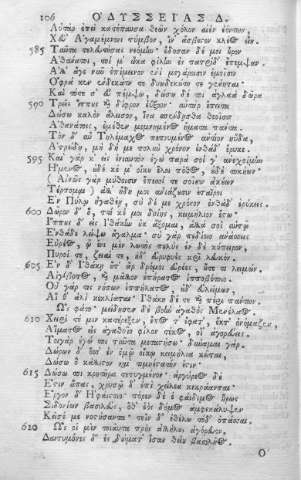 106 ὈΔΥΣΣΕΊΑΣ Δ.
Αὐτὰρ ἐπεὶ κατέπαυσα θεῶν χόλον αἰὲν ἐόντων,
Χεῦ' Ἀγαμέμνονι τύμβον, ἵν' ἄσβεστον κλέος εἴη.
585 Ταῦτα τελευτήσας νεόμην· ἔδοσαν δέ μοι οὖρον
Ἀθάνατοι, τοί μ' ὦκα φίλην ἐς πατρίδ' ἔπεμψαν.
Ἀλλ' ἄγε νῦν ἐπίμεινον ἐνὶ μεγάροισιν ἐμοῖσιν
Ὄφρα κεν ἑνδεκάτη τε δυωδεκάτη τε γένηται·
Καὶ τότε σ' εὖ πέμψω, δώσω δέ τοι ἀγλαὰ δῶρα
590 Τρεῖς ἵππους καὶ δίφρον ἐΰξοον· αὐτὰρ ἔπειτα
Δώσω καλὸν ἄλεισον, ἵνα σπένδῃσθα θεοῖσιν
Ἀθανάτοις, ἐμέθεν μεμνημένος ἤματα πάντα.
Τὸν δ' αὖ Τηλέμαχος πεπνυμένος ἀντίον ηὔδα,
Ἀτρείδη, μὴ δή με πολὺν χρόνον ἐνθάδ' ἔρυκε.
595 Καὶ γάρ κ' εἰς ἐνιαυτὸν ἐγὼ παρὰ σοί γ' ἀνεχοίμην
Ἥμενος, οὐδέ κέ μ' οἴκου ἕλοι πόθος, οὐδὲ τοκήων·
(Αἰνῶς γὰρ μύθοισιν ἔπεσσί τε σοῖσιν ἀκούων
Τέρπομαι) ἀλλ' ἤδη μοι ἀνιάζουσιν ἑταῖροι
Ἐν Πύλῳ ἠγαθέῃ, σὺ δέ με χρόνον ἐνθάδ' ἐρύκεις.
600 Δῶρον δ' ὅ, ττί κέ μοι δοίης, κειμήλιον ἔστω·
Ἵππους δ' εἰς Ἰθάκην οὐκ ἄξομαι, ἀλλὰ σοὶ αὐτῷ
Ἐνθάδε λείψω ἄγαλμα· σὺ γὰρ πεδίοιο ἀνάσσεις
Εὐρέος, ᾧ ἔνι μὲν λωτὸς πολὺς ἐν δὲ κύπειρον,
Πυροί τε, ζειαί τε, ἰδ' εὐρυφυὲς κρῖ λευκόν·
605 Ἐν δ' Ἰθάκῃ οὔτ' ἂρ δρόμοι εὐρέες, οὔτε τι λειμών,
Αἰγίβοτος, καὶ μᾶλλον ἐπήρατος ἱπποβότοιο.
Οὐ γάρ τις νήσων ἱππήλατος, οὐδ' εὐλείμων,
Αἵ θ' ἁλὶ κεκλίαται· Ἰθάκη δέ τε καὶ περὶ πασέων.
Ὣς φάτο· μείδησεν δὲ βοὴν ἀγαθὸς Μενέλαος·
610 Χειρί τέ μιν κατέρεξεν, ἔπος τ' ἔφατ', ἔκ τ' ὀνόμαζεν,
Αἵματος εἰς ἀγαθοῖο φίλον τέκος, οἷ' ἀγορεύεις.
Τοιγὰρ ἐγώ τοι ταῦτα μεταστήσω· δύναμαι γάρ.
Δώρων δ' ὅσσ' ἐν ἐμῷ οἴκῳ κειμήλια κεῖται,
Δώσω ὃ κάλλιστον καὶ τιμηέστατόν ἐστιν.
615 Δώσω τοι κρητῆρα τετυγμένον· ἀργύρεος δὲ
Ἐστὶν ἅπας, χρυσῷ δ' ἐπὶ χείλεα κεκράανται·
Ἔργον δ' Ἡφαίστοιο· πόρεν δέ ἑ φαίδιμος ἥρως
Σιδονίων βασιλεύς, ὅθ' ἑὸς δόμος ἀμφεκάλυψεν
Κεῖσέ με νοστήσαντα· τεῒν δ' ἐθέλω τόδ' ὀπάσσαι.
620 Ὣς οἱ μὲν τοιαῦτα πρὸς ἀλλήλους ἀγόρευον,
Δαιτυμόνες δ' ἐς δώματ' ἴσαν θείου βασιλῆος.
Ο